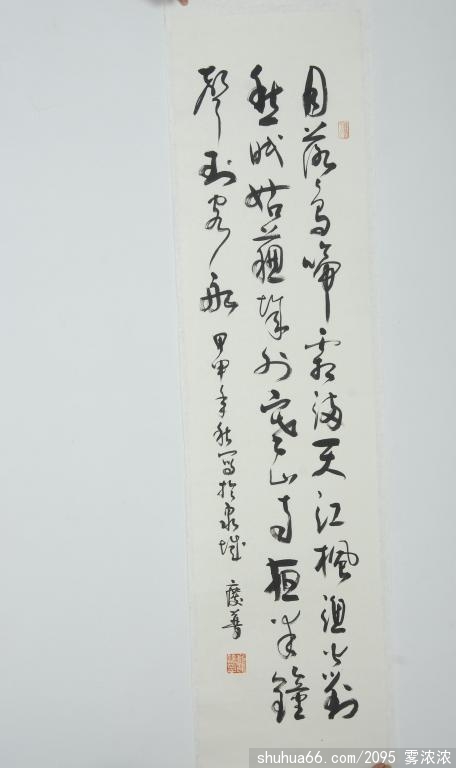 月落烏啼霜满天江楓漁火對
愁眠姑蘇城外寒山寺夜半鐘
聲到客船 甲申年秋写於泉城
shuhua66.com/2095 雾浓浓